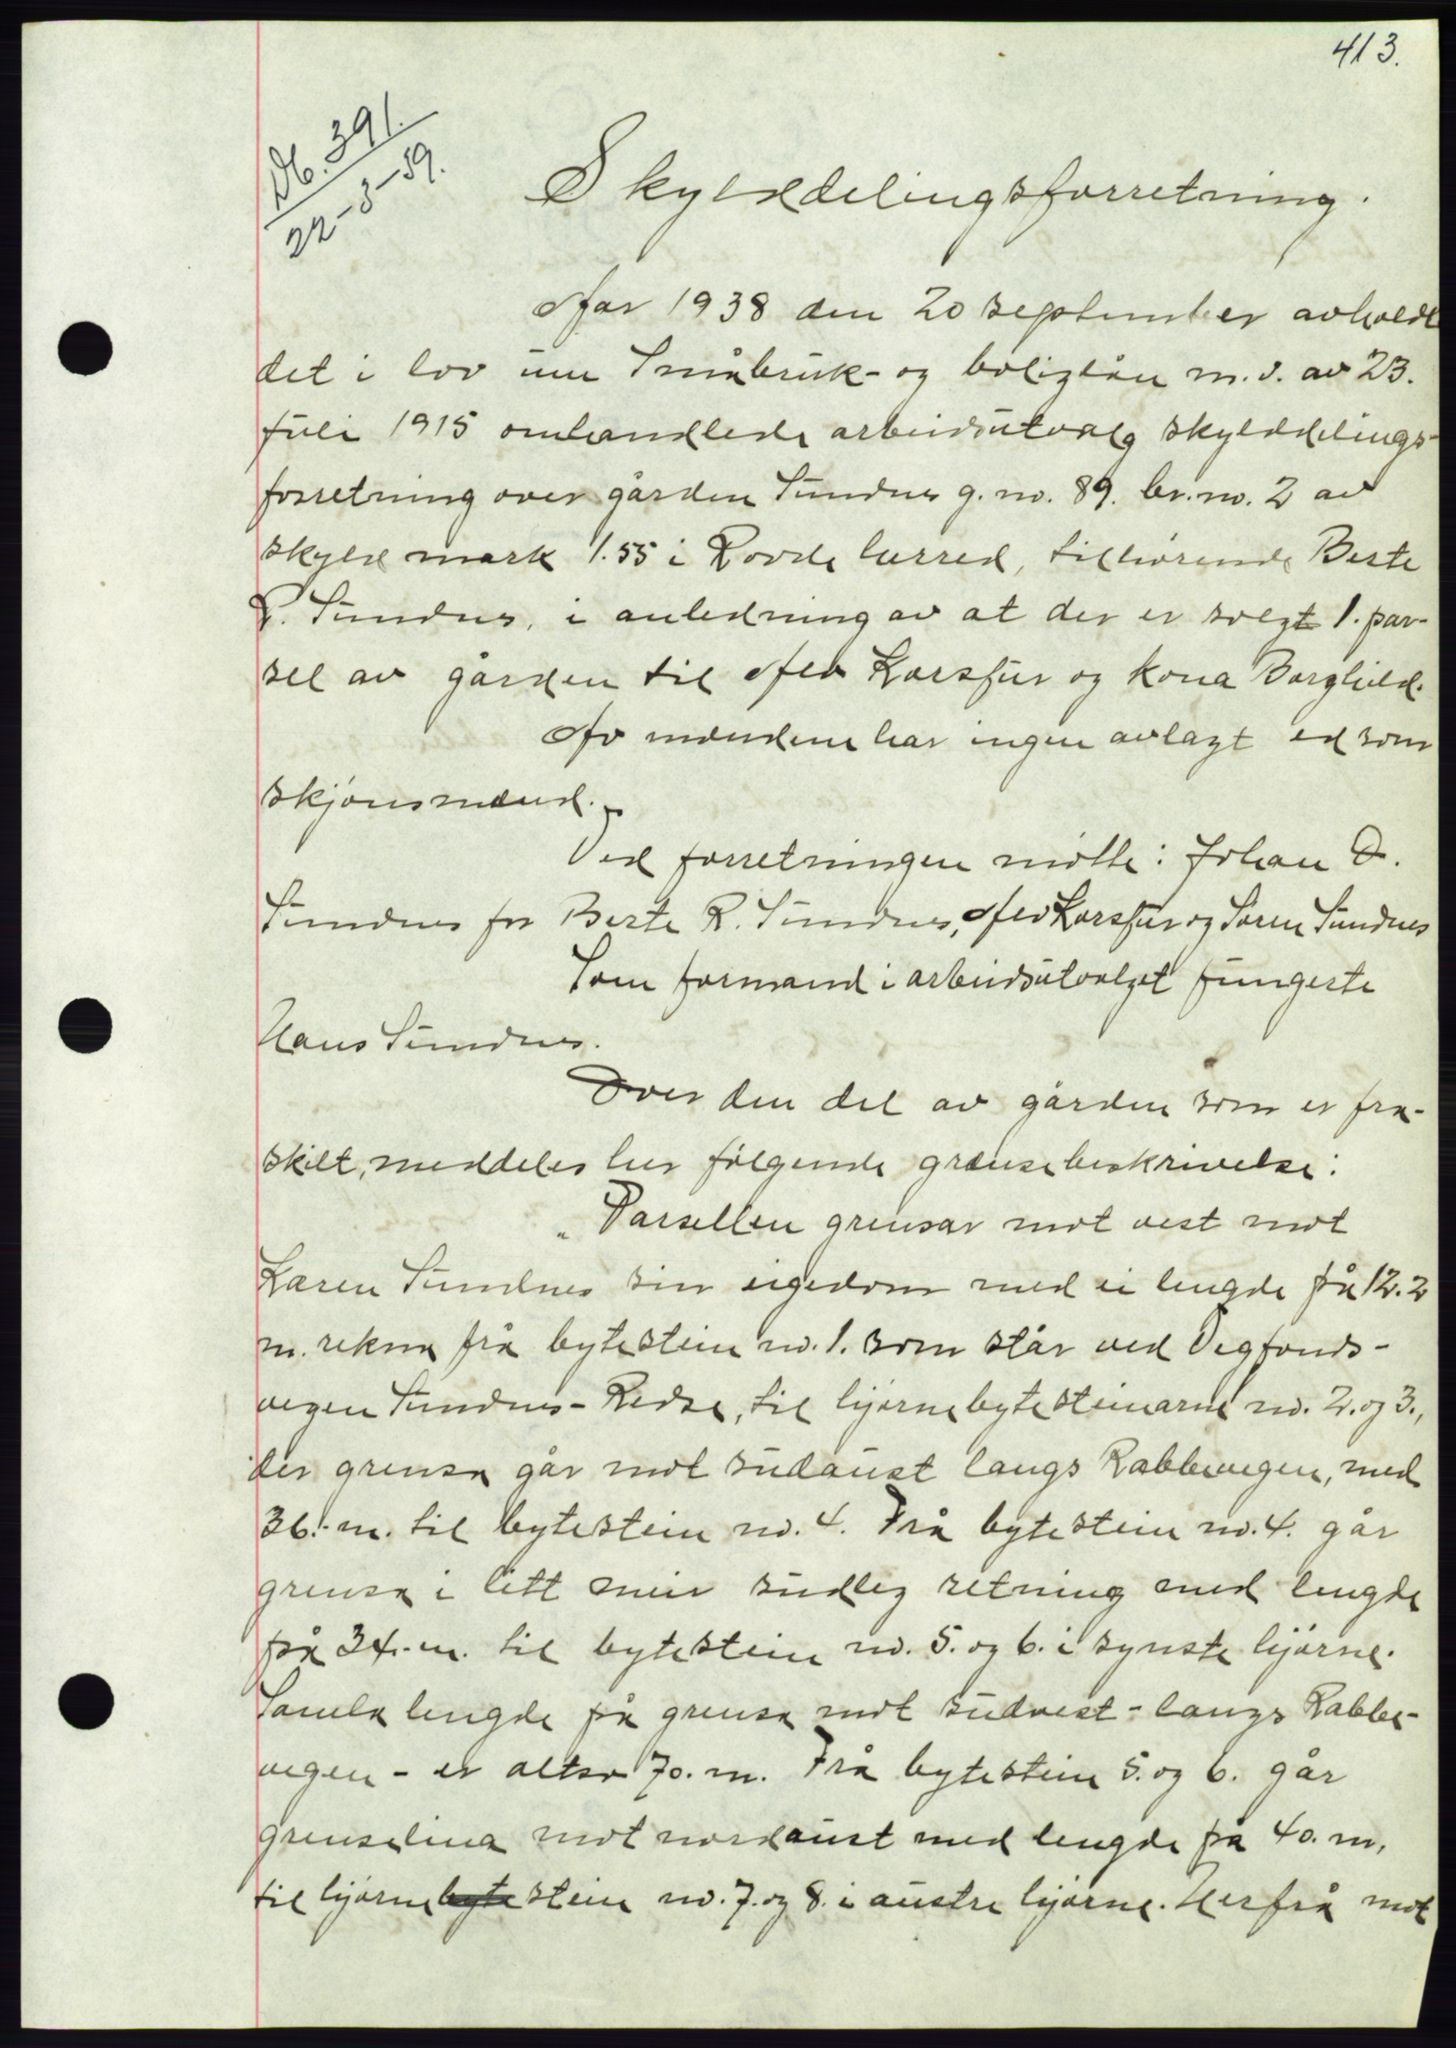 413.
Db. 391.
22-3-39.
Skylddelingsforretning.
Aar 1938 den 20 september avholdt
det i lov um Småbruk- og boliglån m.v. av 23.
juli 1915 omhandlede arbeidsutvalg skylddelings-
forretning over gården Sundnes g.no. 89. br.no. 2 av
skyld mark 1.55 i Rovde herred, tilhørende Berte
R. Sundnes, i anledning av at der er solgt 1. par-
sel av gården til Alv Korsfur og kona Borghild.
Av mændene har ingen avlagt ed som
skjønsmænd.
Ved forretningen møtte: Johan O.
Sundnes for Berte R. Sundnes, Alv Korsfur og Søren Sundnes
Som formand i arbeidsutvalget fungerte
Hans Sundnes.
Over den del av gården som er fra-
skilt, meddeles her følgende grænsebeskrivelse:
"Parsellen grensar mot vest mot
Karen Sundnes sin eigedom med ei lengde på 12.2
m. rekna frå bytestein no. 1. som står ved Vegfonds-
vegen Sundnes-Redse, til hjørnebytesteinarne no. 2. og 3.,
der grensa går mot sudaust langs Rabbevegen, med
36.-m. til bytestein no. 4. Frå bytestein no. 4. går
grensa i litt meir sudleg retning med lengde
på 34.-m. til bytestein no. 5. og 6. i synste hjørne.
Samla lengde på grensa mot sudvest - langs Rabbe-
vegen - er altso 70. m. Frå bytestein 5. og 6. går
grenselina mot nordaust med lengde på 40. m.
til hjørnebytestein no. 7. og 8. i austre hjørne. Herfrå mot